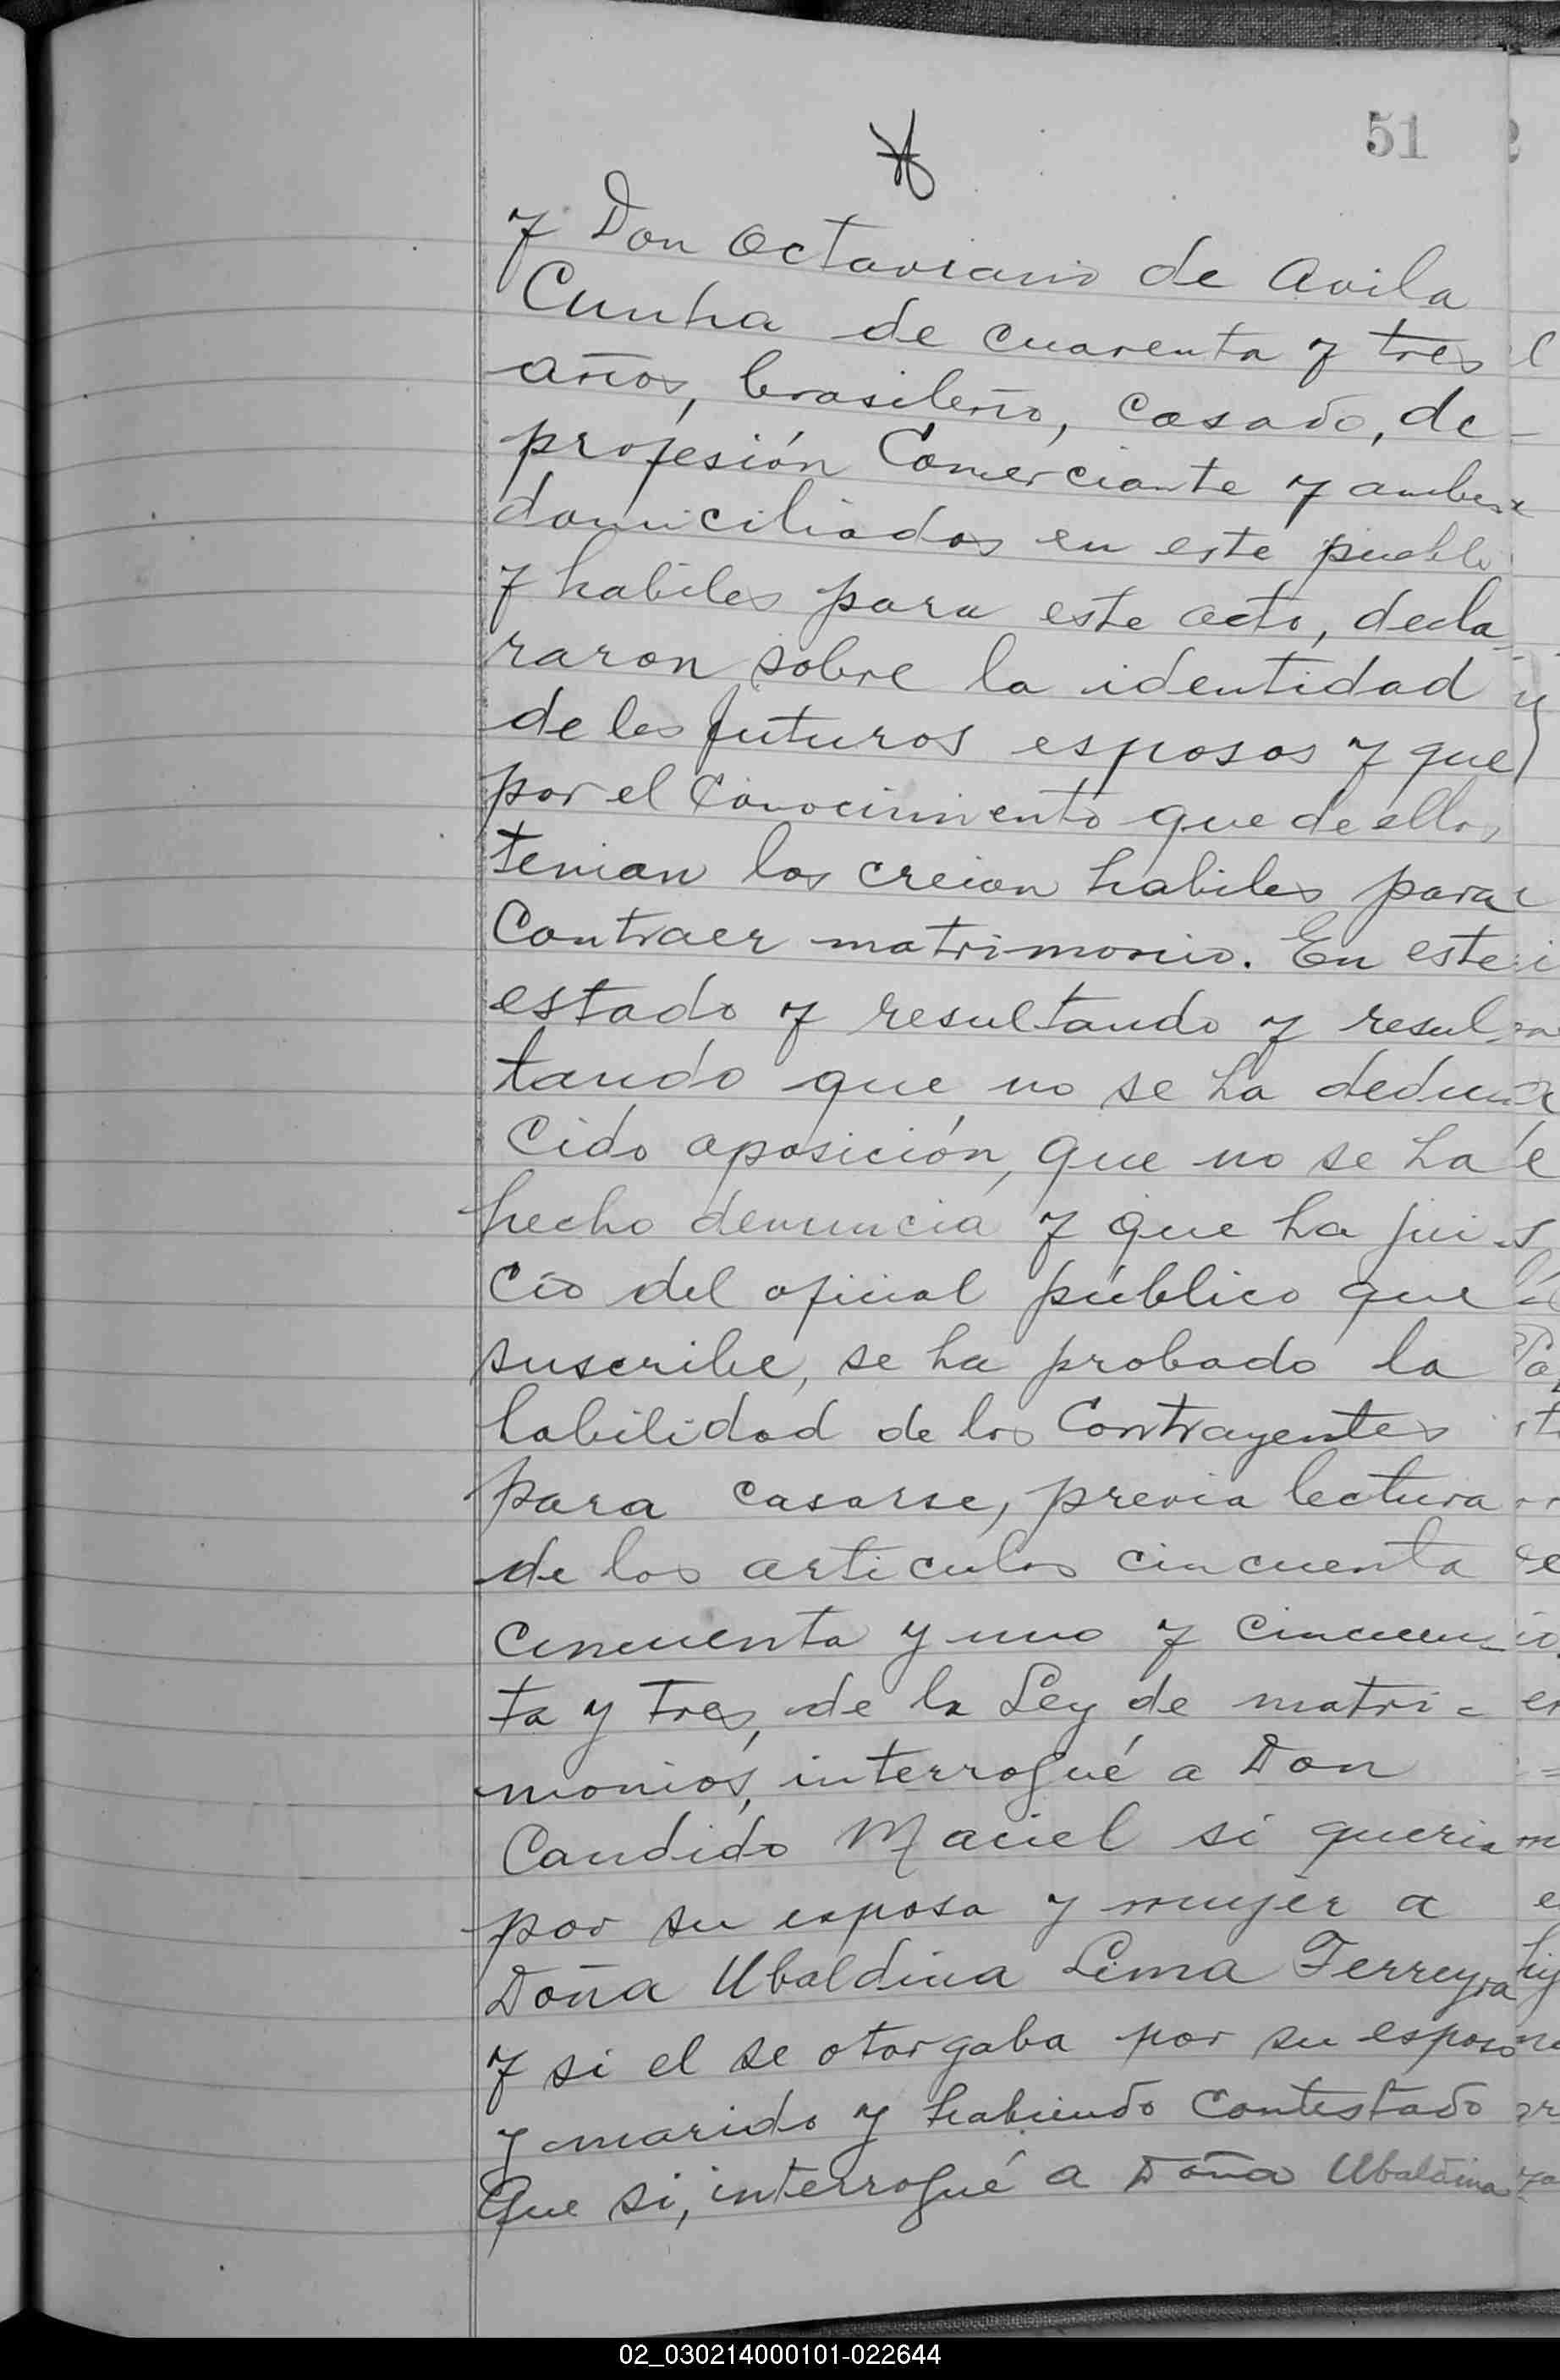 51
y Don Octaviano de Avila
Cunha de cuarenta y tres
años, brasileño, casado, de
profesión Comerciante y ambos
domiciliados en este pueblo
y habiles para este acto, decla-
raron sobre la identidad
de los futuros esposos y que
por el conocimiento que de ellos
tenian los creian habiles para
Contraer matrimonio. En este
estado y resultando y resul-
tando que no se ha dedu-
cido oposición, que no se ha
hecho denuncia y que ha jui-
cio del oficial público que
suscribe, se ha probado la
habilidad de los Contrayentes
para casarse, previa lectura
de los articulos cincuenta
cincuenta y uno y cincuen-
ta y tres, de la Ley de matri-
monios, interrogué a Don
Candido Maciel si queria
por su esposa y mujer a
Doña Ubaldina Lima Ferreyra
y si el se otorgaba por su esposo
y marido y habiendo Contestado
Que si, interrogué a Doña Ubaldina
02_030214000101-022644